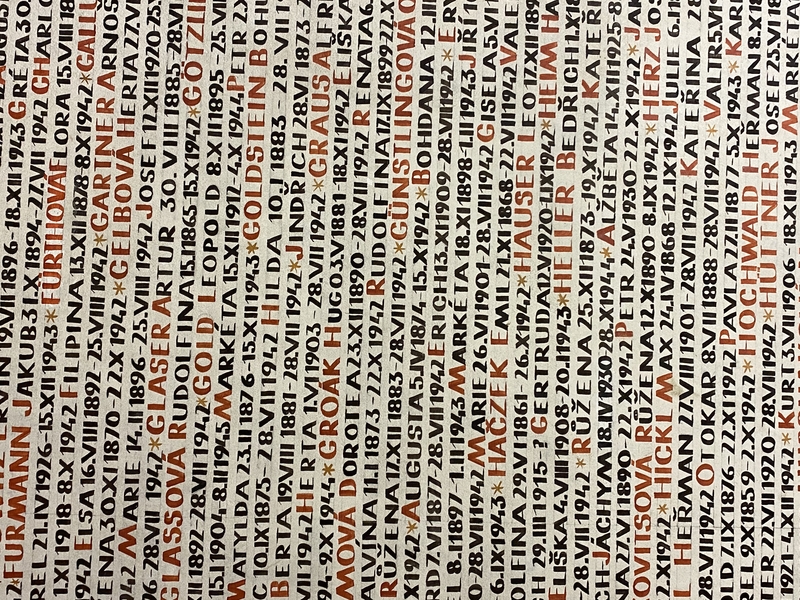 ERVIN 19.VII 1896-18.XII 1943 GRÉTA 30.
*FURMANN JAKUB 31.X 1894-27.VII 1942 CHARLO
REL 21.IV 1926-15.XII 1943*FÜRTHOVÁ FLORA 15.VIII 18
1.XI 1918-8.X 1942 FILIPINA 13.XII 1878-8.X 1942*GALLU
942 ELSA 16.VIII 1892-25.VIII 1942*GARTNER ARNOŠ
ŽENA 30.XI 1870-22.X 1942*GELBOVÁ HERTA 27.VI
942 MARIE 14.II 1896-25.VIII 1942 JOSEF 12.XII 1920-25.
96-28.VII 1942*GLASER ARTUR 30.VIII 1885-28.VI
GLASSOVÁ RUDOLFINA 15.I 1865-15.X 1942*GÖTZLI
XII 1892-28.VII 1942*GOLD LEOPOLD 8.XII 1895-25.VII
15.I 1904-8.II 1945 MARKÉTA 15.XII 1912-4.X 1944 PETR 2.
MATYLDA 23.II 1876-15.XII 1943*GOLDSTEIN BOHU
C 10.IX 1875-28.VII 1942 HILDA 10.I 1883-28.VII 1
BERTA 19.VIII 1881-28.VII 1942*JINDŘICH 28.VI 1873-
VII 1942 HERTA 1.VI 1903-28.VII 1942*GRAUS ALFR
94-9.X 1944*GROÁK HUGO 3.V 1881-18.XI 1942 ELIŠKA
MOVÁ DOROTEA 23.XII 1890-28.VII 1942 RENATA 6.
ALVÍNA 11.I 1873-22.X 1942 RUDOLFINA 17.IX 1899-22.X
RŮŽENA 17.XII 1883-28.VII 1942*GÜNSTLINGOVÁ O
.X 1942*AUGUSTA 5.IV 1874-15.X 1942*BOHDANA 12.II
RD 7.VI 1877-28.VII 1942 ERICH 13.XI 1909-28.VII 1942*ER
EL 8.I 1897-1.II 1943 MARKÉTA 18.XI 1898-1.II 1943 JIŘÍ 1
0-28.VII 1942 MARIE 26.VI 1901-28.VII 1942 GISELA 5.VI
-6.IX 1943*HAČZEK EMIL 21.XI 1868-22.VII 1942 VALE
OLFINA 29.VI 1861-26.X 1942*HAUSER LEO 17.XII 189
CH 29.III 1915-? GERTRUDA 12.V 1920-1.IX 1942*HEIM HA
ELIŠKA 4.VIII 1908-20.I 1943*HELLER BEDŘICH 1.X 18
-28.VII 1942*RŮŽENA 25.XII 1873-19.X 1942 KATEŘI
CH JÁCHYM 18.IV 1930-28.X 1944*ALŽBĚTA 14.XII 1925-8
NA 27.VI 1890-22.X 1942 PETR 24.V 1930-22.X 1942*JAK
KOVITSOVÁ RŮŽENA 12.X 1890-8.IX 1942*HERZ JOS
2.X 1942*HICKL MAX 24.IV 1868-12.IX 1942 JULIE 6.I
L HEŘMAN 27.VIII 1901-28.VII 1942 KATEŘINA 28
28.VII 1942 OTOKAR 8.VII 1888-28.VII 1942*VALTR 5.VI
OLD 7.IX 1876-22.XI 1942 PAVLA 27.II 1877-5.X 1943*KAR
REL 9.X 1859-2.X 1942*HOCHWALD HEŘMAN 8.X
TER 22.VII 1920-28.VII 1942*HÜTTNER JOSEF 25.VI 18
1921-4.XII 1942*KURT 3.VII 1906-18.XII 1943 MARKÉTA